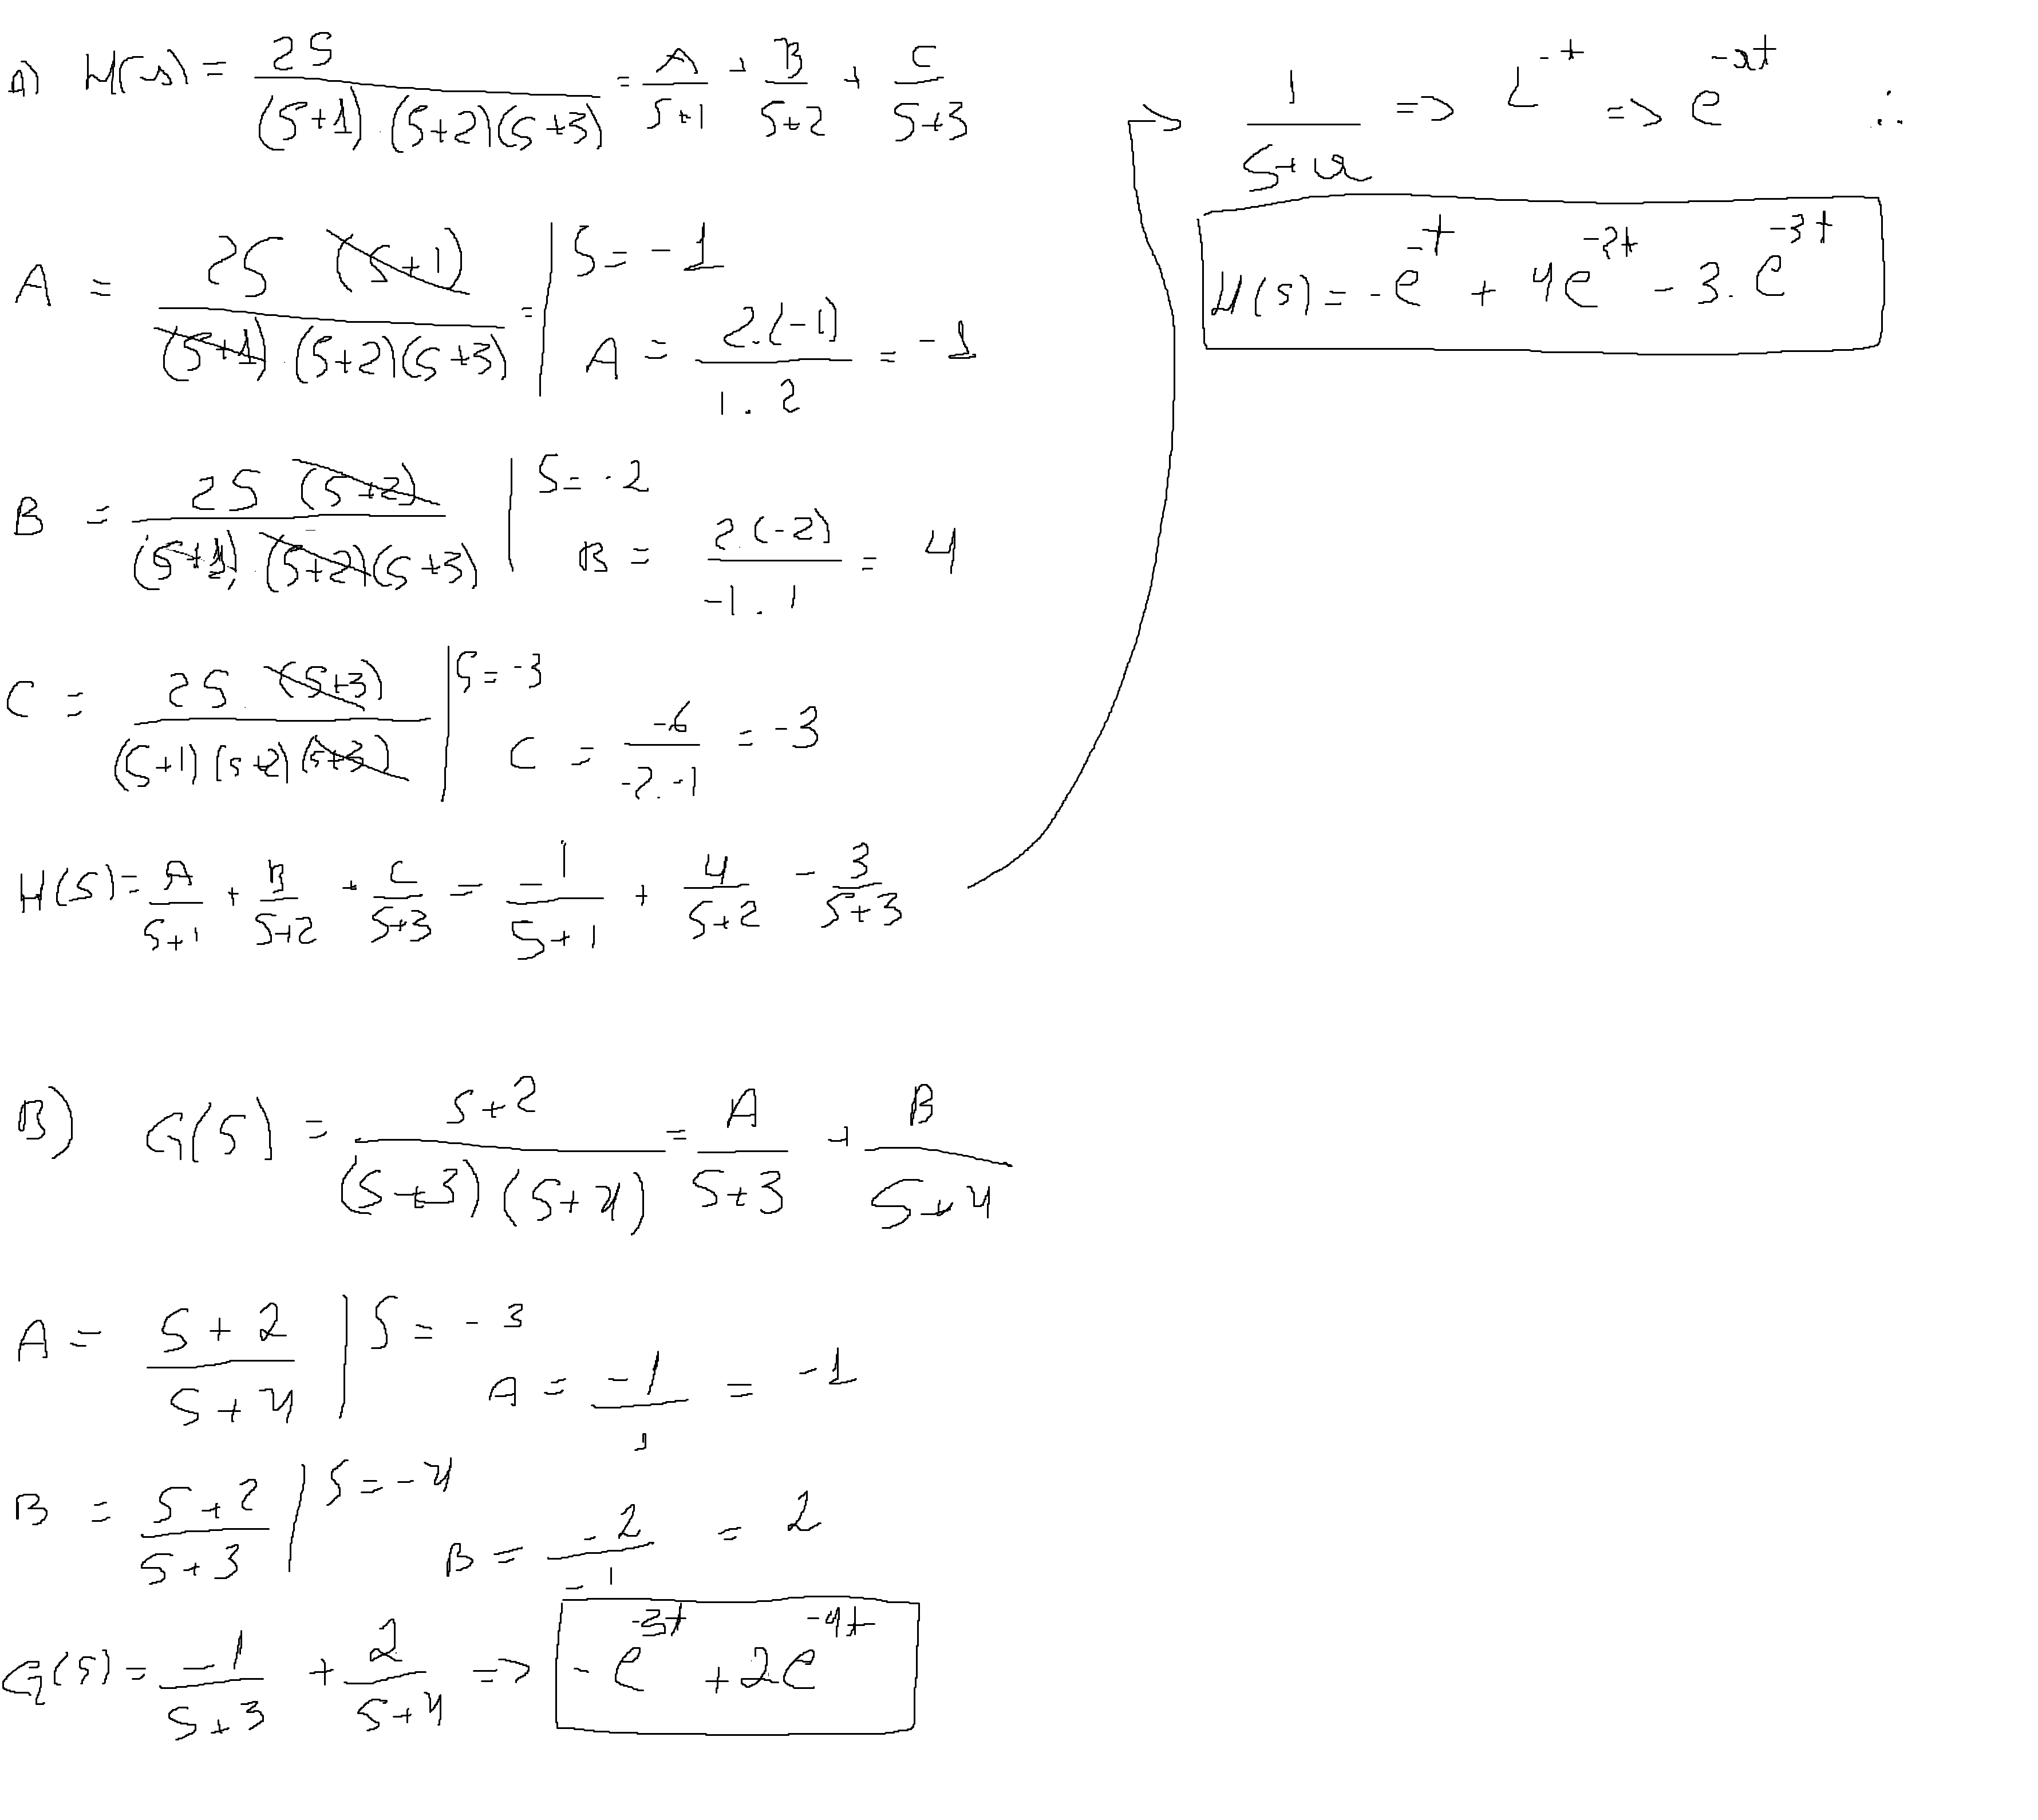 A) H(s) = 2S / (S+1).(S+2)(S+3) = A/S+1 + B/S+2 + C/S+3
A = 2S (S+1) / (S+1).(S+2)(S+3) = | S = -1
A = 2.(-1) / 1.2 = -1
B = 2S (S+2) / (S+1).(S+2)(S+3) | S = -2
B = 2.(-2) / -1.1 = 4
C = 2S.(S+3) / (S+1)(S+2)(S+3) | S = -3
C = -6 / -2.-1 = -3
H(S) = A/S+1 + B/S+2 + C/S+3 = -1/S+1 + 4/S+2 - 3/S+3
1/S+a => L^-t => e^-at ∴
H(S) = -e^-t + 4e^-2t - 3.e^-3t
B) G(S) = S+2 / (S+3)(S+4) = A/S+3 + B/S+4
A = S+2 / S+4 | S = -3
A = -1/1 = -1
B = S+2 / S+3 | S = -4
B = -2/-1 = 2
G(S) = -1/S+3 + 2/S+4 => -e^-3t + 2e^-4t